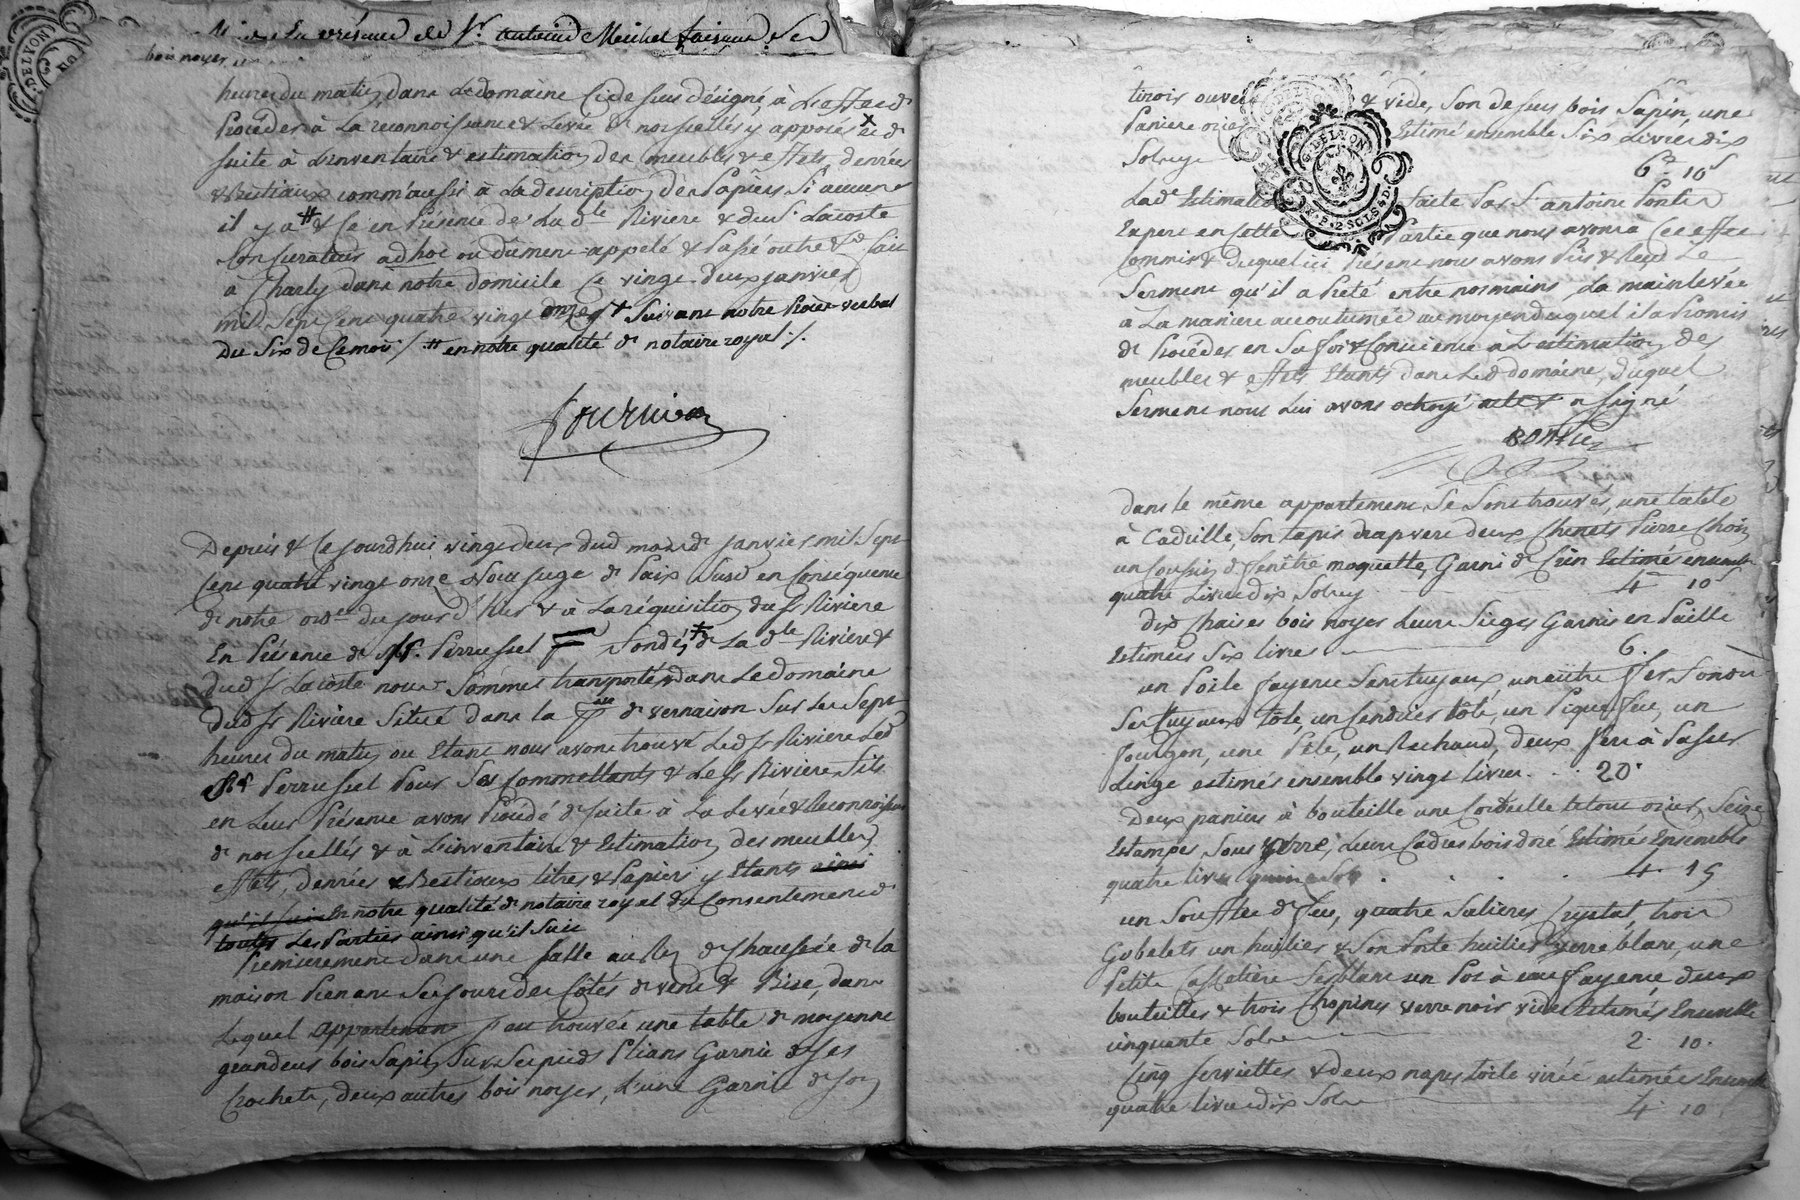 En présence de Sr. Antoine Michel faisant
bois noyer
heures du matin, dans Le domaine Cidessus désigné, à L'effet de
Procéder à La reconnoissance & Levée de nos scellés y apposés & de
suite à L'inventaire & estimation des meubles & effets, denrées
& Bestiaux comm'aussi à La description des Papiers si aucuns
il y a # & Ce en Présence de La dle Riviere & dud Sr. Lacoste
Son Curateur ad hoc ou dûment appelé & Passé outre & Fait
à Charly dans notre domicile Ce vingt deux janvier
mil Sept Cent quatre vingt onze & Suivant notre Procès verbal
du Six de Ce mois /. # en notre qualité de notaire royal /.
Fournier
Depuis & Ce jourdhui vingt deux dud mois de janvier mil Sept
Cent quatre vingt onze Nous juge de Paix Susd en Conséquence
de notre ordce du jour d'hier & à La réquisition du Sr Riviere
En Présence de Mr. Perrussel Fondé de La dle Riviere &
dud Sr Lacoste nous Sommes transportés dans Le domaine
dud Sr Riviere Situé dans la Psse de vernaison Sur Les Sept
heures du matin, ou Etant nous avons trouvé Led Sr Riviere Led
Mr Perrussel Pour Ses Commettants & Le Sr Riviere Fils
en Leur Présence avons Procédé de suite à La Levée & Reconnoissance
de nos scellés & à L'inventaire & Estimation des meubles
effets, denrées & Bestiaux titres & Papiers y Etants ainsi
qu'il suit En notre qualité de notaire royal du Consentement de
toutes Les Parties ainsi qu'il Suit
Premierement dans une Salle au Rez de Chaussée de la
maison Prenant Ses jours des Côtés de vent & Bise, dans
Lequel appartement S'est trouvée une table de moyenne
grandeur bois Sapin Sur Ses pieds Pliants Garnie de Ses
Crochets, deux autres bois noyer, L'une Garnie de Son
tiroir ouvert & vide, Son dessus bois Sapin, une
Paniere osier Estimé ensemble Six Livres dix
Sols cy
6# 10s
Lade Estimation faite Par Sr antoine Pontier
Expert en Cette Partie que nous avons a Cet effet
Commis & duquel ici Présent nous avons Pris & Reçu Le
Serment qu'il a Preté entre nos mains La main Levée
a La maniere accoutumée au moyen duquel il a Promis
de Procéder en Sa foi & Conscience à L'estimation des
meubles & effets Etants dans Led domaine, duquel
Serment nous Lui avons octroyé acte & a signé
PONtier
dans le même appartement Se Sont trouvés, une table
à Cadrille, Son tapis drap vert deux Chenets Pierre Choin
un Coussin de fenêtre moquette, Garni de Crin Estimés ensemble
quatre Livres dix Sols cy 4# 10s
dix Chaises bois noyer Leurs Sieges Garnis en Paille
Estimées Six livres 6.
un Poile fayence Sans tuyaux, un autre fer fondu
Ses tuyaux tôle, un Cendrier tôle, un Pique feu, un
fourgon, une Pele, un Rechaud, deux fers à Passer
Linge estimés ensemble vingt livres . . . 20.
Deux paniers à bouteille une Corbeille le tout osier, Seize
Estampes Sous verre, Leurs Cadres bois doré Estimés Ensemble
quatre livres quinze Sols . . . 4. 15
un Soufflet de feu, quatre Salières Crystal, trois
Gobelets un huilier & Son Porte huilier verre blanc, une
Petite Caffetière fer blanc un Pot à eau fayence deux
bouteilles & trois Chopines verre noir vides Estimés Ensemble
cinquante Sols 2. 10.
Cinq serviettes & deux napes toile usée estimées Ensemble
quatre livres dix Sols 4. 10.